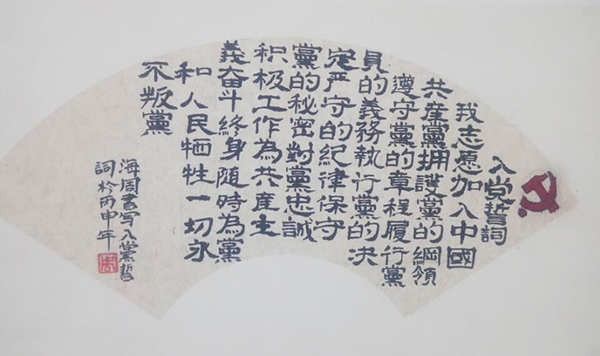 入党誓詞
我志愿加入中國
共産黨拥護黨的綱領
遵守黨的章程履行黨
員的義務执行黨的决
定严守的纪律保守
黨的秘密對黨忠誠
积极工作為共産主
義奋斗終身随時為黨
和人民牺牲一切永
不叛黨
海周書写入黨誓
詞於丙申年